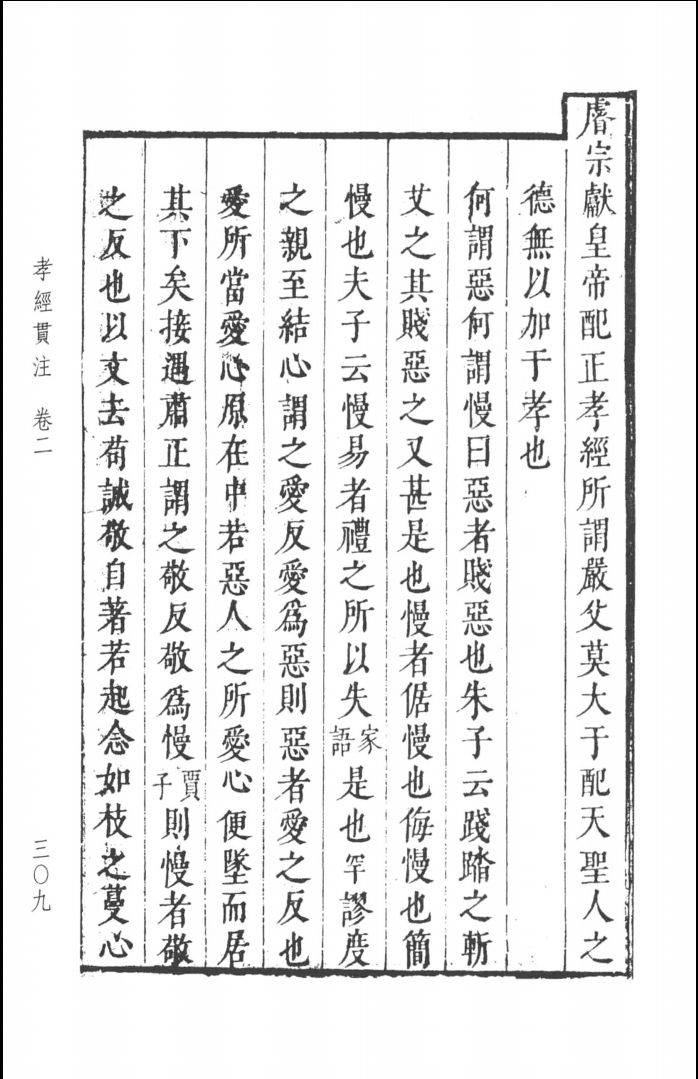 睿宗獻皇帝配正孝經所謂嚴父莫大于配天聖人之
德無以加于孝也
何謂惡何謂慢曰惡者賤惡也朱子云踐踏之斬
艾之其賤惡之又甚是也慢者倨慢也侮慢也簡
慢也夫子云慢易者禮之所以失家語是也罕謬度
之親至結心謂之愛反愛為惡則惡者愛之反也
愛所當愛心原在中若惡人之所愛心便墜而居
其下矣接遇肅正謂之敬反敬為慢賈子則慢者敬
之反也以文去苟誠敬自著若起念如枝之蔓心
孝經貫注 卷二
三〇九